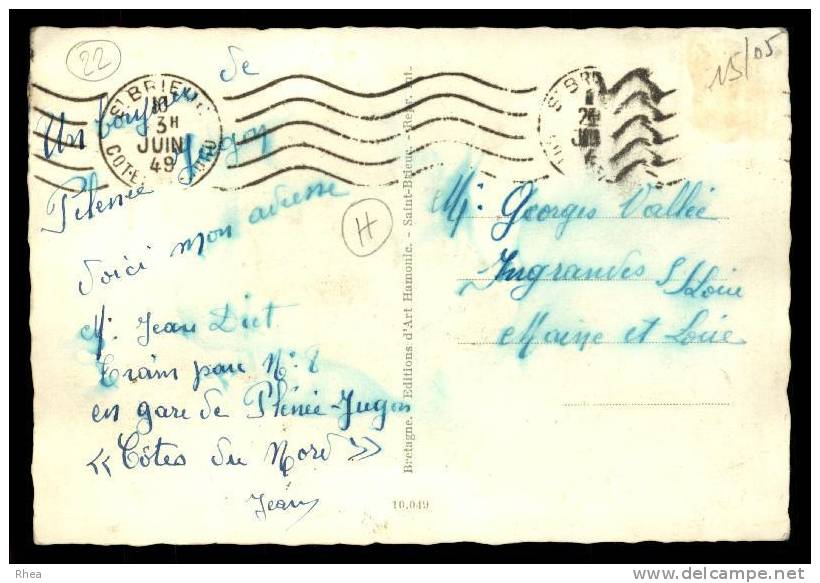 22
St BRIEUC
3H
JUIN
49
Un bonjour de
Plenée Jugon
Voici mon adresse
Mr Jean Diet
Train parc N° 8
en gare de Plénée-Jugon
« Côtes du Nord »
Jean
H
Bretagne. - Editions d'Art Hamonic. - Saint-Brieuc. -
10,049
15/05
Mr Georges Vallée
Ingrandes s/Loire
Maine et Loire
Rhea
www.delcampe.net